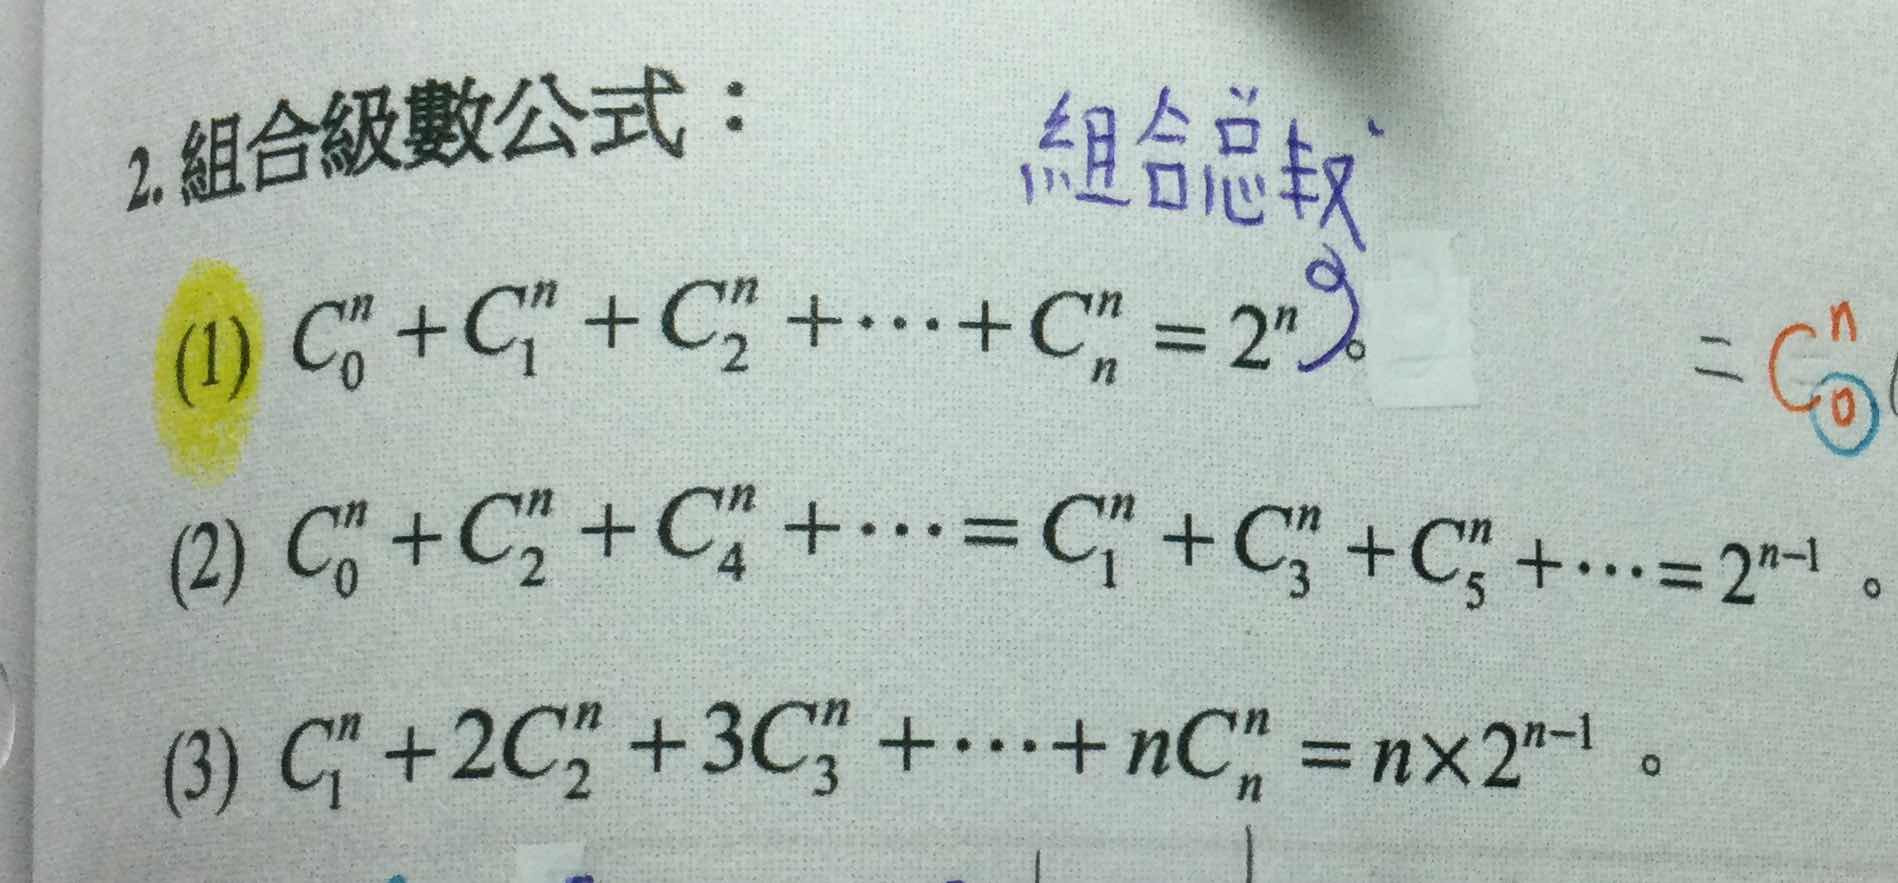 2. 組合級數公式：
組合总
(1) C₀ⁿ + C₁ⁿ + C₂ⁿ + ⋯ + Cₙⁿ = 2ⁿ。
= C₀ⁿ (
(2) C₀ⁿ + C₂ⁿ + C₄ⁿ + ⋯ = C₁ⁿ + C₃ⁿ + C₅ⁿ + ⋯ = 2ⁿ⁻¹。
(3) C₁ⁿ + 2C₂ⁿ + 3C₃ⁿ + ⋯ + nCₙⁿ = n×2ⁿ⁻¹。